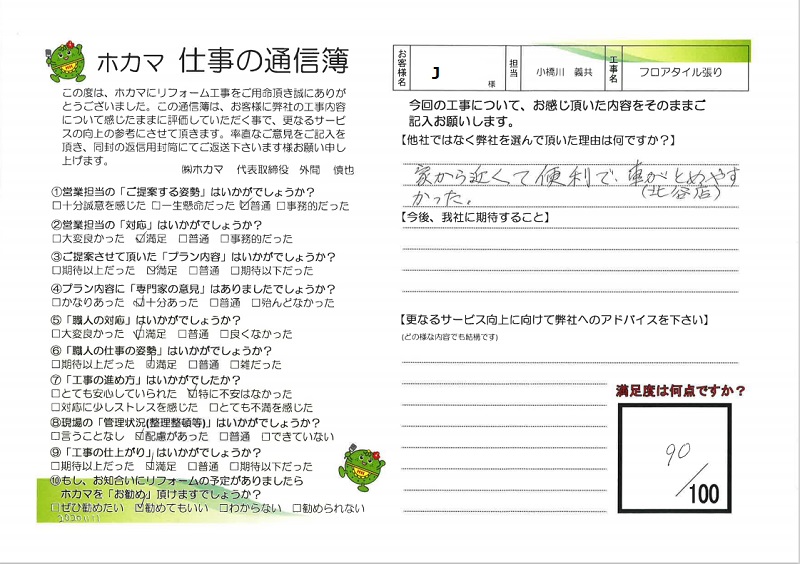 ホカマ 仕事の通信簿
この度は、ホカマにリフォーム工事をご用命頂き誠にありが
とうございました。この通信簿は、お客様に弊社の工事内容
について感じたままに評価していただく事で、更なるサービ
スの向上の参考にさせて頂きます。率直なご意見をご記入を
頂き、同封の返信用封筒にてご返送下さいます様お願い申し
上げます。
㈱ホカマ 代表取締役 外間 慎也
①営業担当の「ご提案する姿勢」はいかがでしょうか?
□十分誠意を感じた □一生懸命だった ☑普通 □事務的だった
②営業担当の「対応」はいかがでしょうか?
□大変良かった ☑満足 □普通 □事務的だった
③ご提案させて頂いた「プラン内容」はいかがでしょうか?
□期待以上だった ☑満足 □普通 □期待以下だった
④プラン内容に「専門家の意見」はありましたでしょうか?
□かなりあった ☑十分あった □普通 □殆んどなかった
⑤「職人の対応」はいかがでしょうか?
□大変良かった ☑満足 □普通 □良くなかった
⑥「職人の仕事の姿勢」はいかがでしょうか?
□期待以上だった ☑満足 □普通 □雑だった
⑦「工事の進め方」はいかがでしたか?
□とても安心していられた ☑特に不安はなかった
□対応に少しストレスを感じた □とても不満を感じた
⑧現場の「管理状況(整理整頓等)」はいかがでしょうか?
□言うことなし ☑配慮があった □普通 □できていない
⑨「工事の仕上がり」はいかがでしょうか?
□期待以上だった ☑満足 □普通 □期待以下だった
⑩もし、お知合いにリフォームの予定がありましたら
ホカマを「お勧め」頂けますでしょうか?
□ぜひ勧めたい ☑勧めてもいい □わからない □勧められない
お客様名 J 様 担当 小橋川 義共 工事名 フロアタイル張り
今回の工事について、お感じ頂いた内容をそのままご
記入お願いします。
【他社ではなく弊社を選んで頂いた理由は何ですか?】
家から近くて便利で、車がとめやす
かった。 (北谷店)
【今後、我社に期待すること】
【更なるサービス向上に向けて弊社へのアドバイスを下さい】
(どの様な内容でも結構です)
満足度は何点ですか?
90
/100